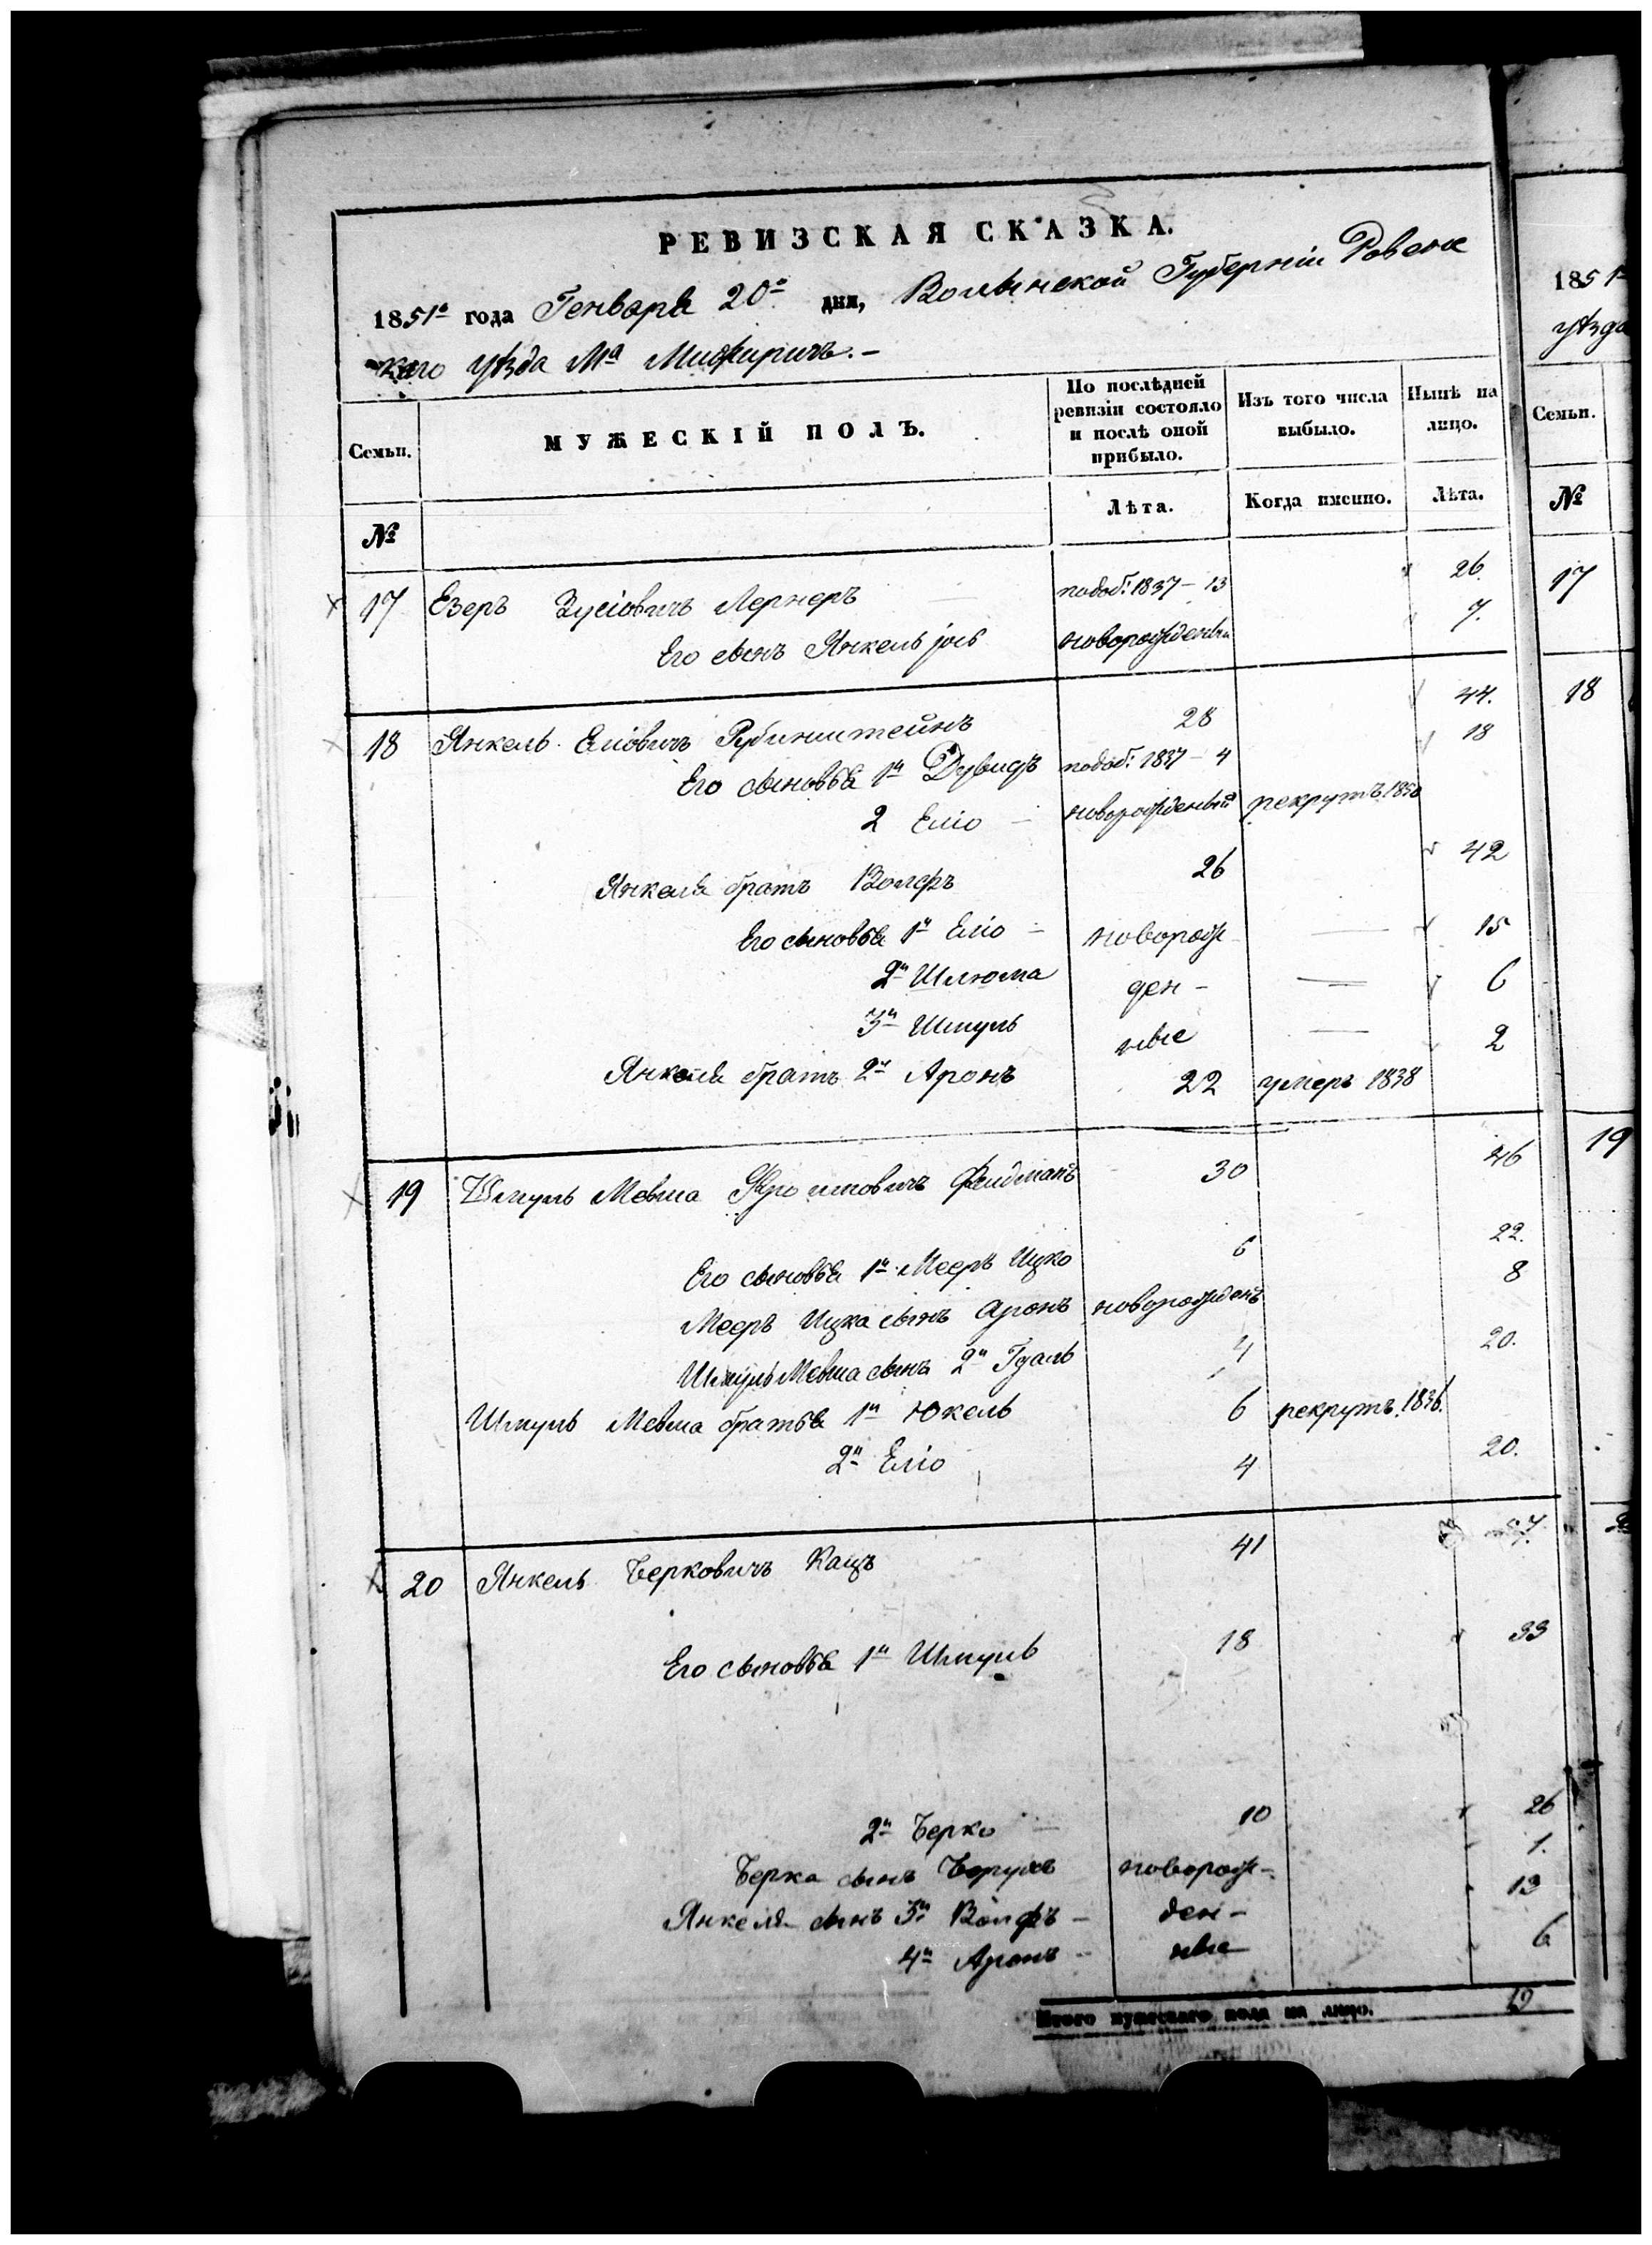 РЕВИЗСКАЯ СКАЗКА.
1851го года Генваря 20го дня, Волынской Губерніи Ровенс
каго уѣзда Ма Межиричъ. –
Семьи.
МУЖЕСКІЙ ПОЛЪ.
По послѣдней ревизіи состояло и послѣ оной прибыло.
Изъ того числа выбыло.
Нынѣ на лицо.
№
Лѣта.
Когда именно.
Лѣта.
17 Езеръ Зусіовичъ Лернеръ 1837 – 13 26.
Его сынъ Янкель новорожденный 7.
18 Янкель Еліовичъ Рубинштейнъ 28 44.
Его сыновья 1й Дувидъ 1837 – 4 18
2 Еліо – новорожденный рекрутъ 1850
Янкеля братъ Волфъ 26 42
Его сыновья 1й Еліо – новорож- — 15
2й Шлюма ден- — 6
3й Шмуль ные — 2
Янкеля братъ 2й Аронъ 22 умеръ 1838
19 Шмуль Мевша Фидманъ 30 46
Его сыновья 1й Мееръ Ицко 6 22.
Мееръ Ицка сынъ Аронъ новорожденъ 8
Шмуль Мевша сынъ 2й 4 20.
Шмуль Мевша братья 1й Юкель 6 рекрутъ 1836.
2й Еліо 4 20.
20 Янкель Берковичъ Кацъ 41 57.
Его сыновья 1й Шмуль 18 33
2й Берко – 10 26
Берка сынъ Борухъ новорож- 1.
Янкеля сынъ 3й Волфъ – ден- 13
4й Аронъ – ные 6
Итого мужескаго пола на лицо. 19
1851
уѣзда
Семьи.
№
17
18
19